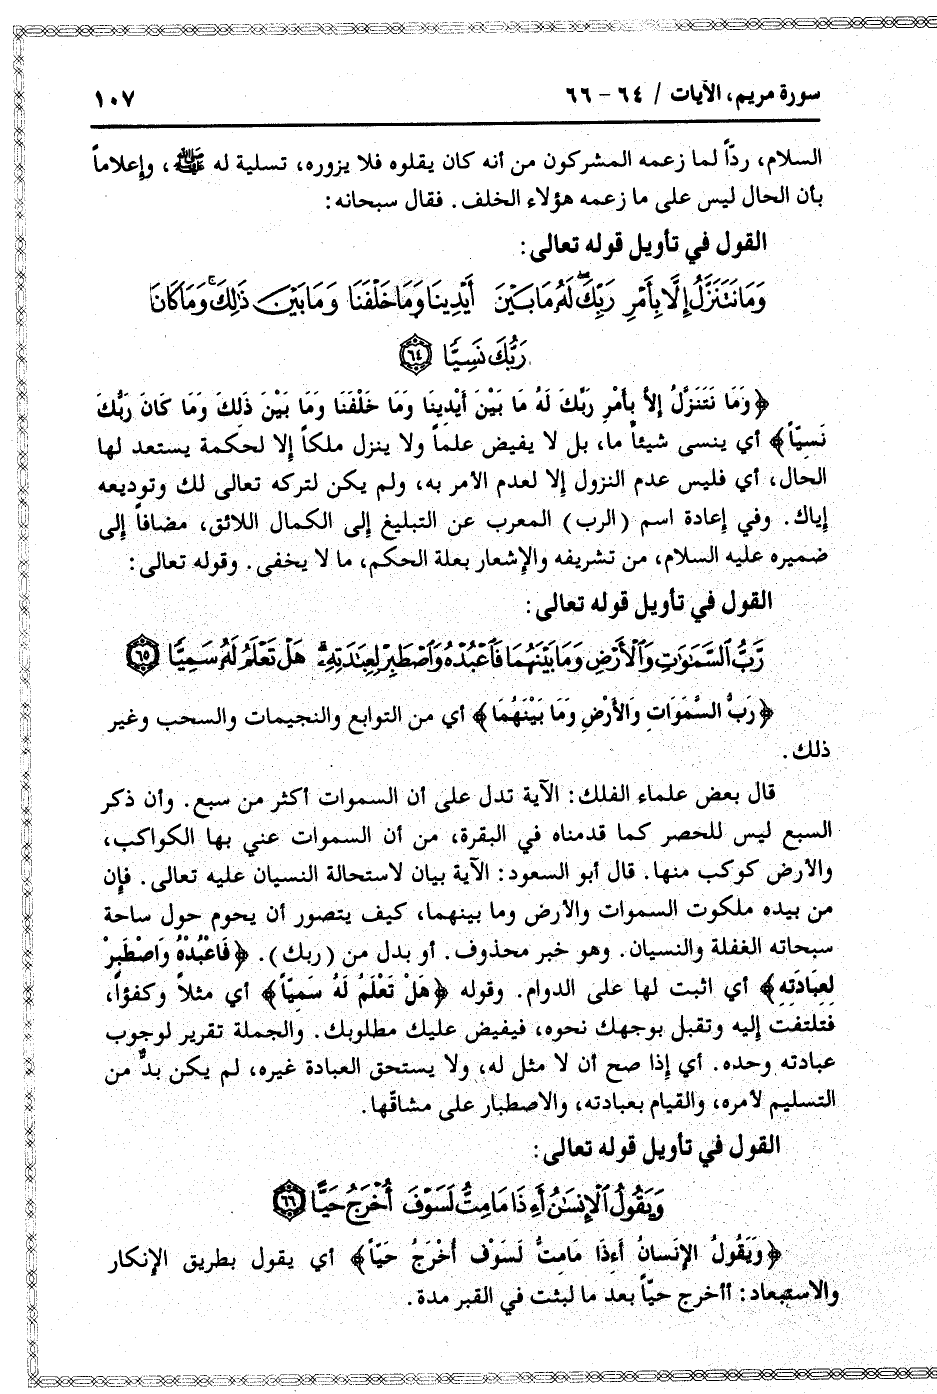 سورة مريم، الآيات / ٦٤ - ٦٦
١٠٧
السلام، ردّاً لما زعمه المشركون من أنه كان يقلوه فلا يزوره، تسلية له ﷺ، وإعلاماً
بأن الحال ليس على ما زعمه هؤلاء الخلف. فقال سبحانه:
القول في تأويل قوله تعالى:
وَمَا نَتَنَزَّلُ إِلَّا بِأَمْرِ رَبِّكَ لَهُۥ مَا بَيْنَ أَيْدِينَا وَمَا خَلْفَنَا وَمَا بَيْنَ ذَٰلِكَ وَمَا كَانَ
رَبُّكَ نَسِيًّا ٦٤
﴿وَمَا نَتَنَزَّلُ إِلاَّ بِأَمْرِ رَبِّكَ لَهُ مَا بَيْنَ أَيْدِينَا وَمَا خَلْفَنَا وَمَا بَيْنَ ذَلِكَ وَمَا كَانَ رَبُّكَ
نَسِيّاً﴾ أي ينسى شيئاً ما، بل لا يفيض علماً ولا ينزل ملكاً إلا لحكمة يستعد لها
الحال، أي فليس عدم النزول إلا لعدم الأمر به، ولم يكن لتركه تعالى لك وتوديعه
إياك. وفي إعادة اسم (الرب) المعرب عن التبليغ إلى الكمال اللائق، مضافاً إلى
ضميره عليه السلام، من تشريفه والإشعار بعلة الحكم، ما لا يخفى. وقوله تعالى:
القول في تأويل قوله تعالى:
رَّبُّ ٱلسَّمَٰوَٰتِ وَٱلْأَرْضِ وَمَا بَيْنَهُمَا فَٱعْبُدْهُ وَٱصْطَبِرْ لِعِبَٰدَتِهِۦ هَلْ تَعْلَمُ لَهُۥ سَمِيًّا ٦٥
﴿رَبُّ السَّمَوَاتِ وَالأَرْضِ وَمَا بَيْنَهُمَا﴾ أي من التوابع والنجيمات والسحب وغير
ذلك.
قال بعض علماء الفلك: الآية تدل على أن السموات أكثر من سبع. وأن ذكر
السبع ليس للحصر كما قدمناه في البقرة، من أن السموات عني بها الكواكب،
والأرض كوكب منها. قال أبو السعود: الآية بيان لاستحالة النسيان عليه تعالى. فإن
من بيده ملكوت السموات والأرض وما بينهما، كيف يتصور أن يحوم حول ساحة
سبحانه الغفلة والنسيان. وهو خبر محذوف. أو بدل من (ربك). ﴿فَاعْبُدْهُ وَاصْطَبِرْ
لِعِبَادَتِهِ﴾ أي اثبت لها على الدوام. وقوله ﴿هَلْ تَعْلَمُ لَهُ سَمِيّاً﴾ أي مثلاً وكفؤاً،
فتلتفت إليه وتقبل بوجهك نحوه، فيفيض عليك مطلوبك. والجملة تقرير لوجوب
عبادته وحده. أي إذا صح أن لا مثل له، ولا يستحق العبادة غيره، لم يكن بدٌّ من
التسليم لأمره، والقيام بعبادته، والاصطبار على مشاقّها.
القول في تأويل قوله تعالى:
وَيَقُولُ ٱلْإِنسَٰنُ أَءِذَا مَا مِتُّ لَسَوْفَ أُخْرَجُ حَيًّا ٦٦
﴿وَيَقُولُ الإِنسَانُ أَءِذَا مَامِتُّ لَسَوْف أُخْرَجُ حَيّاً﴾ أي يقول بطريق الإنكار
والاستبعاد: أأخرج حيّاً بعد ما لبثت في القبر مدة.